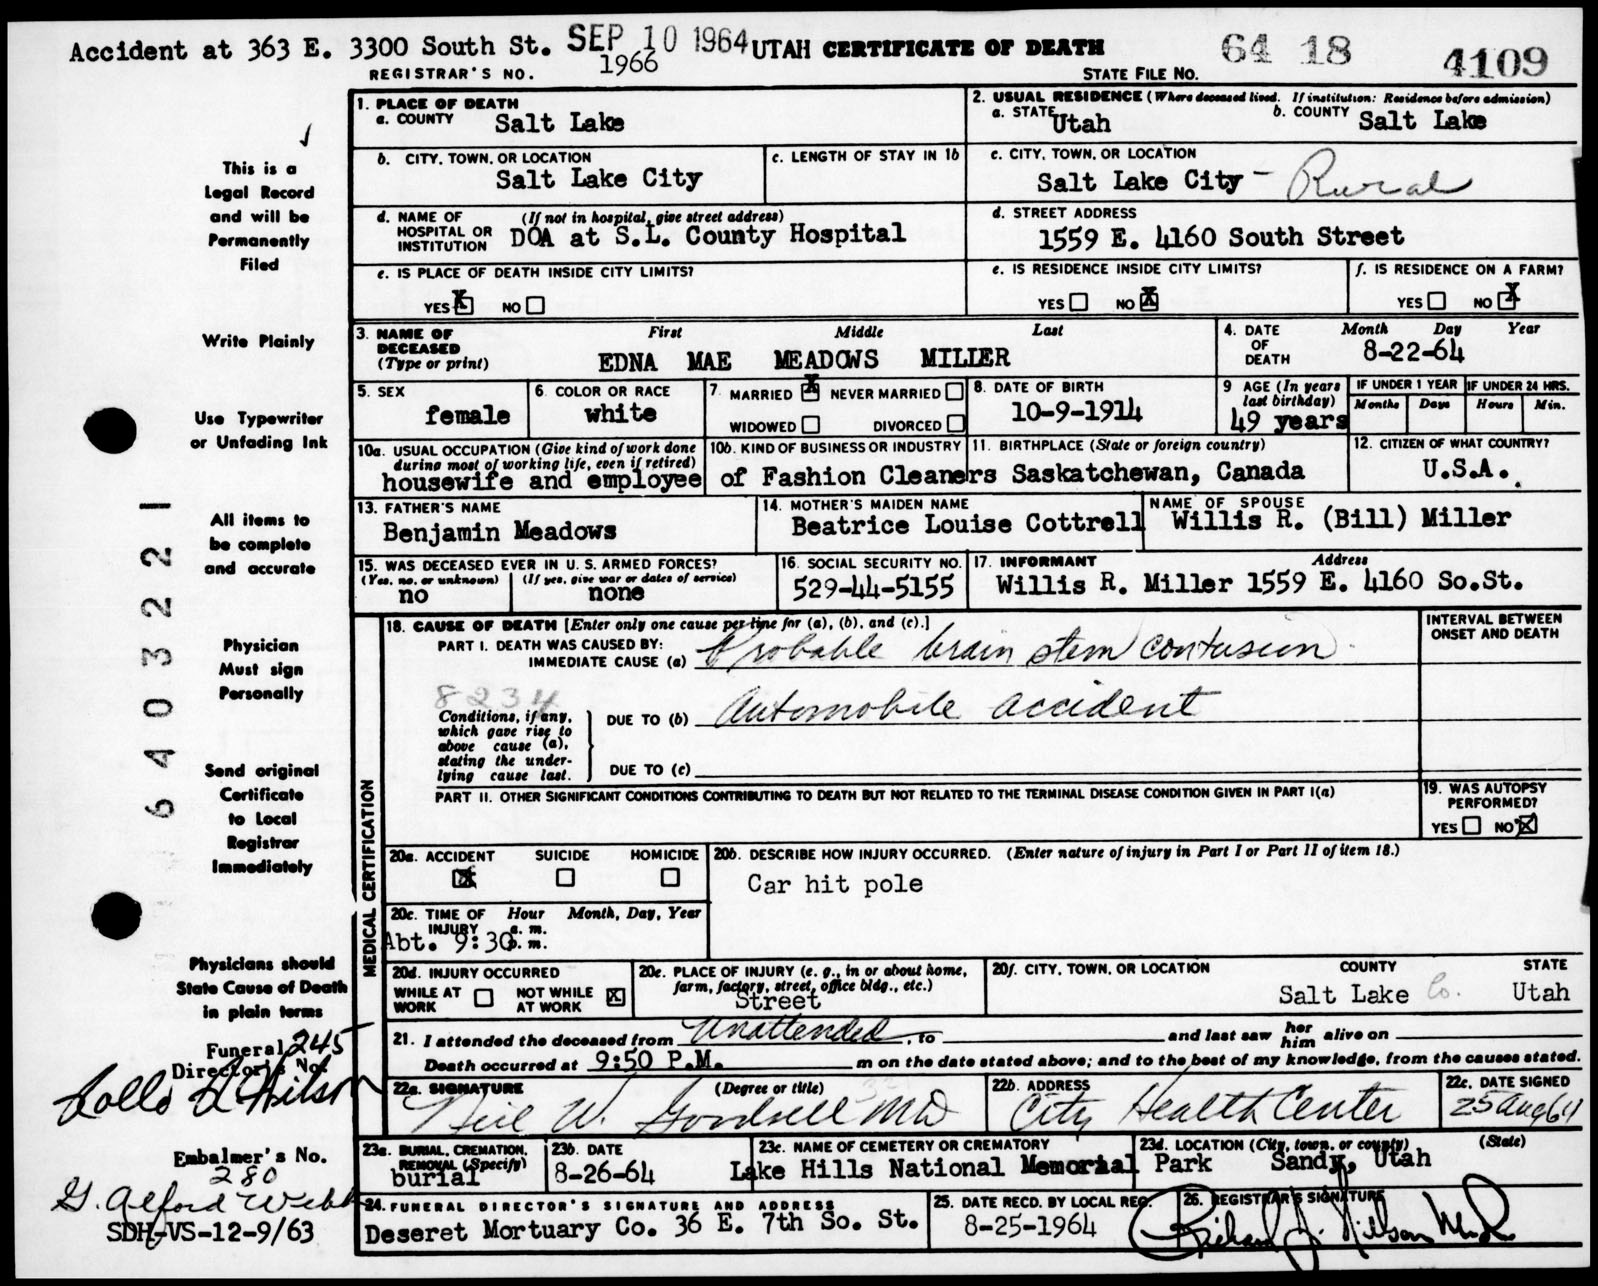 Accident at 363 E. 3300 South St. SEP 10 1964 UTAH CERTIFICATE OF DEATH 64 18 4109
REGISTRAR'S NO. 1966 STATE FILE NO.
This is a
Legal Record
and will be
Permanently
Filed
Write Plainly
Use Typewriter
or Unfading Ink
All items to
be complete
and accurate
Physician
Must sign
Personally
Send original
Certificate
to Local
Registrar
Immediately
Physicians should
State Cause of Death
in plain terms
Funeral 245
Director's No.
Embalmer's No.
280
G. Alford Webb
SDH-VS-12-9/63
6403221
1. PLACE OF DEATH
a. COUNTY Salt Lake
2. USUAL RESIDENCE (Where deceased lived. If institution: Residence before admission)
a. STATE Utah b. COUNTY Salt Lake
b. CITY, TOWN, OR LOCATION
Salt Lake City
c. LENGTH OF STAY IN 1b
c. CITY, TOWN, OR LOCATION
Salt Lake City - Rural
d. NAME OF HOSPITAL OR INSTITUTION (If not in hospital, give street address)
DOA at S.L. County Hospital
d. STREET ADDRESS
1559 E. 4160 South Street
e. IS PLACE OF DEATH INSIDE CITY LIMITS?
YES X NO
e. IS RESIDENCE INSIDE CITY LIMITS?
YES NO X
f. IS RESIDENCE ON A FARM?
YES NO X
3. NAME OF DECEASED (Type or print) First Middle Last
EDNA MAE MEADOWS MILLER
4. DATE OF DEATH Month Day Year
8-22-64
5. SEX
female
6. COLOR OR RACE
white
7. MARRIED X NEVER MARRIED
WIDOWED DIVORCED
8. DATE OF BIRTH
10-9-1914
9 AGE (In years last birthday)
49 years
IF UNDER 1 YEAR IF UNDER 24 HRS.
Months Days Hours Min.
10a. USUAL OCCUPATION (Give kind of work done during most of working life, even if retired)
housewife and employee
10b. KIND OF BUSINESS OR INDUSTRY
of Fashion Cleaners
11. BIRTHPLACE (State or foreign country)
Saskatchewan, Canada
12. CITIZEN OF WHAT COUNTRY?
U.S.A.
13. FATHER'S NAME
Benjamin Meadows
14. MOTHER'S MAIDEN NAME
Beatrice Louise Cottrell
NAME OF SPOUSE
Willis R. (Bill) Miller
15. WAS DECEASED EVER IN U.S. ARMED FORCES?
(Yes, no, or unknown) (If yes, give war or dates of service)
no none
16. SOCIAL SECURITY NO.
529-44-5155
17. INFORMANT Address
Willis R. Miller 1559 E. 4160 So.St.
MEDICAL CERTIFICATION
18. CAUSE OF DEATH [Enter only one cause per line for (a), (b), and (c).]
INTERVAL BETWEEN
ONSET AND DEATH
PART I. DEATH WAS CAUSED BY:
IMMEDIATE CAUSE (a) Probable brain stem contusion
8234
Conditions, if any,
which gave rise to
above cause (a),
stating the under-
lying cause last.
DUE TO (b) Automobile accident
DUE TO (c)
PART II. OTHER SIGNIFICANT CONDITIONS CONTRIBUTING TO DEATH BUT NOT RELATED TO THE TERMINAL DISEASE CONDITION GIVEN IN PART I(a)
19. WAS AUTOPSY
PERFORMED?
YES NO X
20a. ACCIDENT SUICIDE HOMICIDE
X
20b. DESCRIBE HOW INJURY OCCURRED. (Enter nature of injury in Part I or Part II of item 18.)
Car hit pole
20c. TIME OF INJURY Hour Month, Day, Year
a. m.
p. m.
Abt. 9:30
20d. INJURY OCCURRED
WHILE AT WORK NOT WHILE AT WORK X
20e. PLACE OF INJURY (e. g., in or about home, farm, factory, street, office bldg., etc.)
Street
20f. CITY, TOWN, OR LOCATION COUNTY STATE
Salt Lake Co. Utah
21. I attended the deceased from Unattended, to and last saw her him alive on
Death occurred at 9:50 P.M. m on the date stated above; and to the best of my knowledge, from the causes stated.
22a. SIGNATURE (Degree or title)
MD
22b. ADDRESS
City Health Center
22c. DATE SIGNED
25 Aug 64
23a. BURIAL, CREMATION, REMOVAL (Specify)
burial
23b. DATE
8-26-64
23c. NAME OF CEMETERY OR CREMATORY
Lake Hills National Memorial Park
23d. LOCATION (City, town, or county) (State)
Sandy, Utah
24. FUNERAL DIRECTOR'S SIGNATURE AND ADDRESS
Deseret Mortuary Co. 36 E. 7th So. St.
25. DATE RECD. BY LOCAL REG.
8-25-1964
26. REGISTRAR'S SIGNATURE